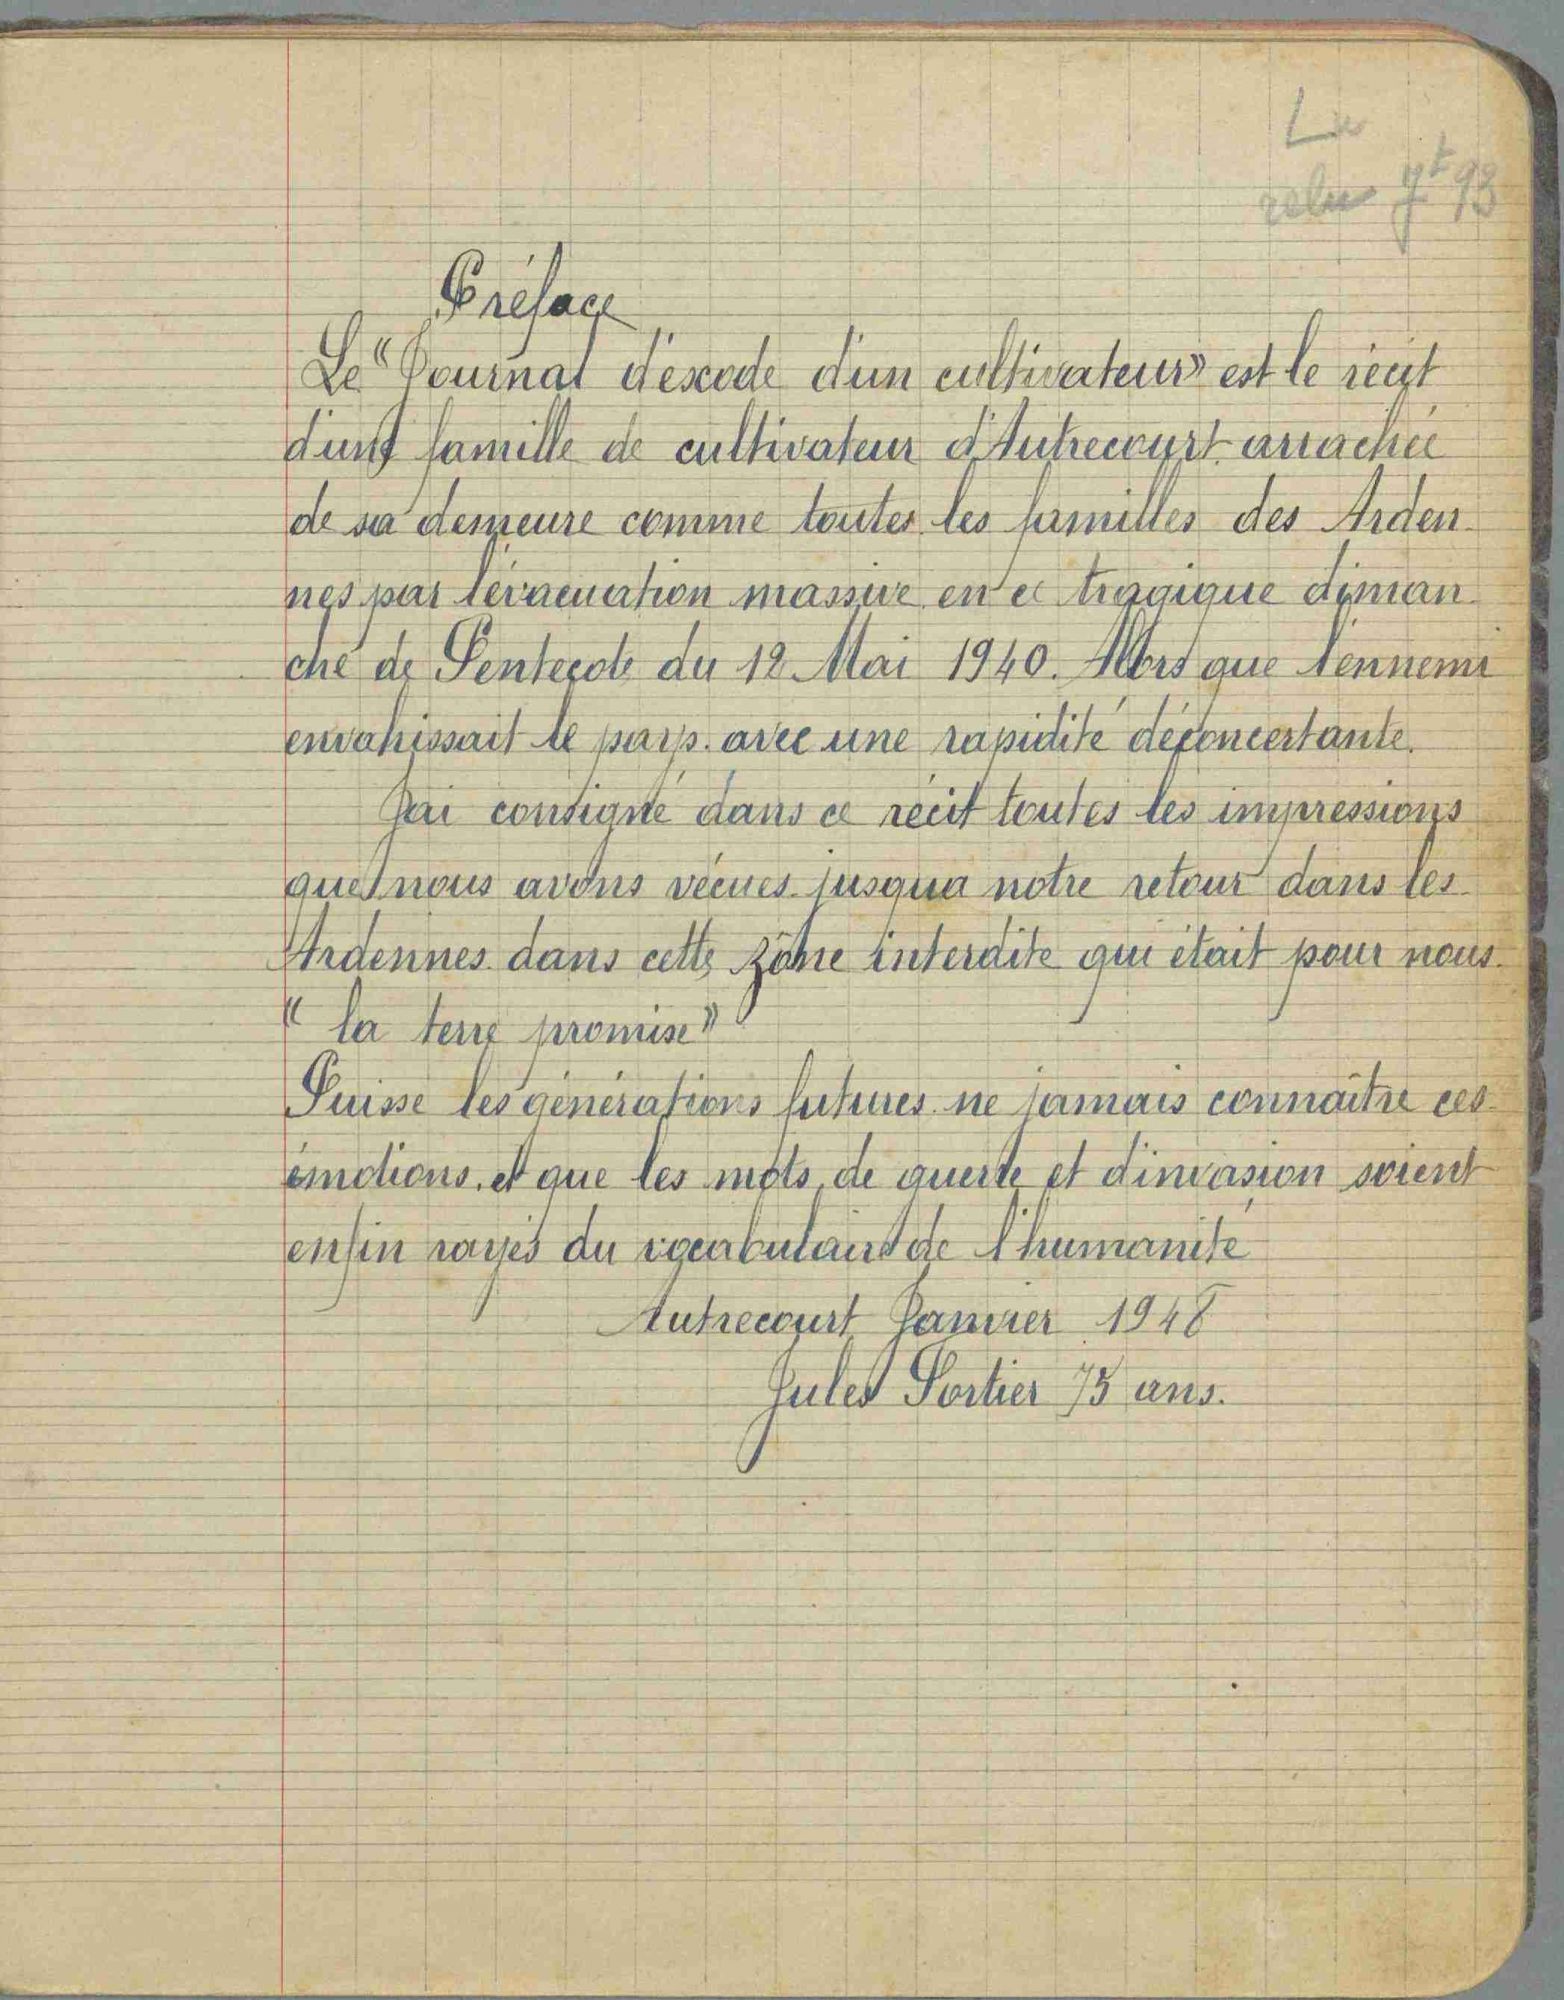 Lu
relu Jt 93
Préface
Le "Journal d'exode d'un cultivateur" est le récit
d'une famille de cultivateur d'Autrecourt arrachée
de sa demeure comme toutes les familles des Arden-
nes par l'évacuation massive en ce tragique diman-
che de Pentecote du 12 Mai 1940. Alors que l'ennemi
envahissait le pays avec une rapidité déconcertante.
J'ai consigné dans ce récit toutes les impressions
que nous avons vécues jusqua notre retour dans les
Ardennes dans cette zône interdite qui était pour nous
"la terre promise"
Puisse les générations futures ne jamais connaître ces
émotions, et que les mots de guerre et d'invasion soient
enfin rayés du vocabulaire de l'humanité
Autrecourt Janvier 1948
Jules Portier 75 ans.